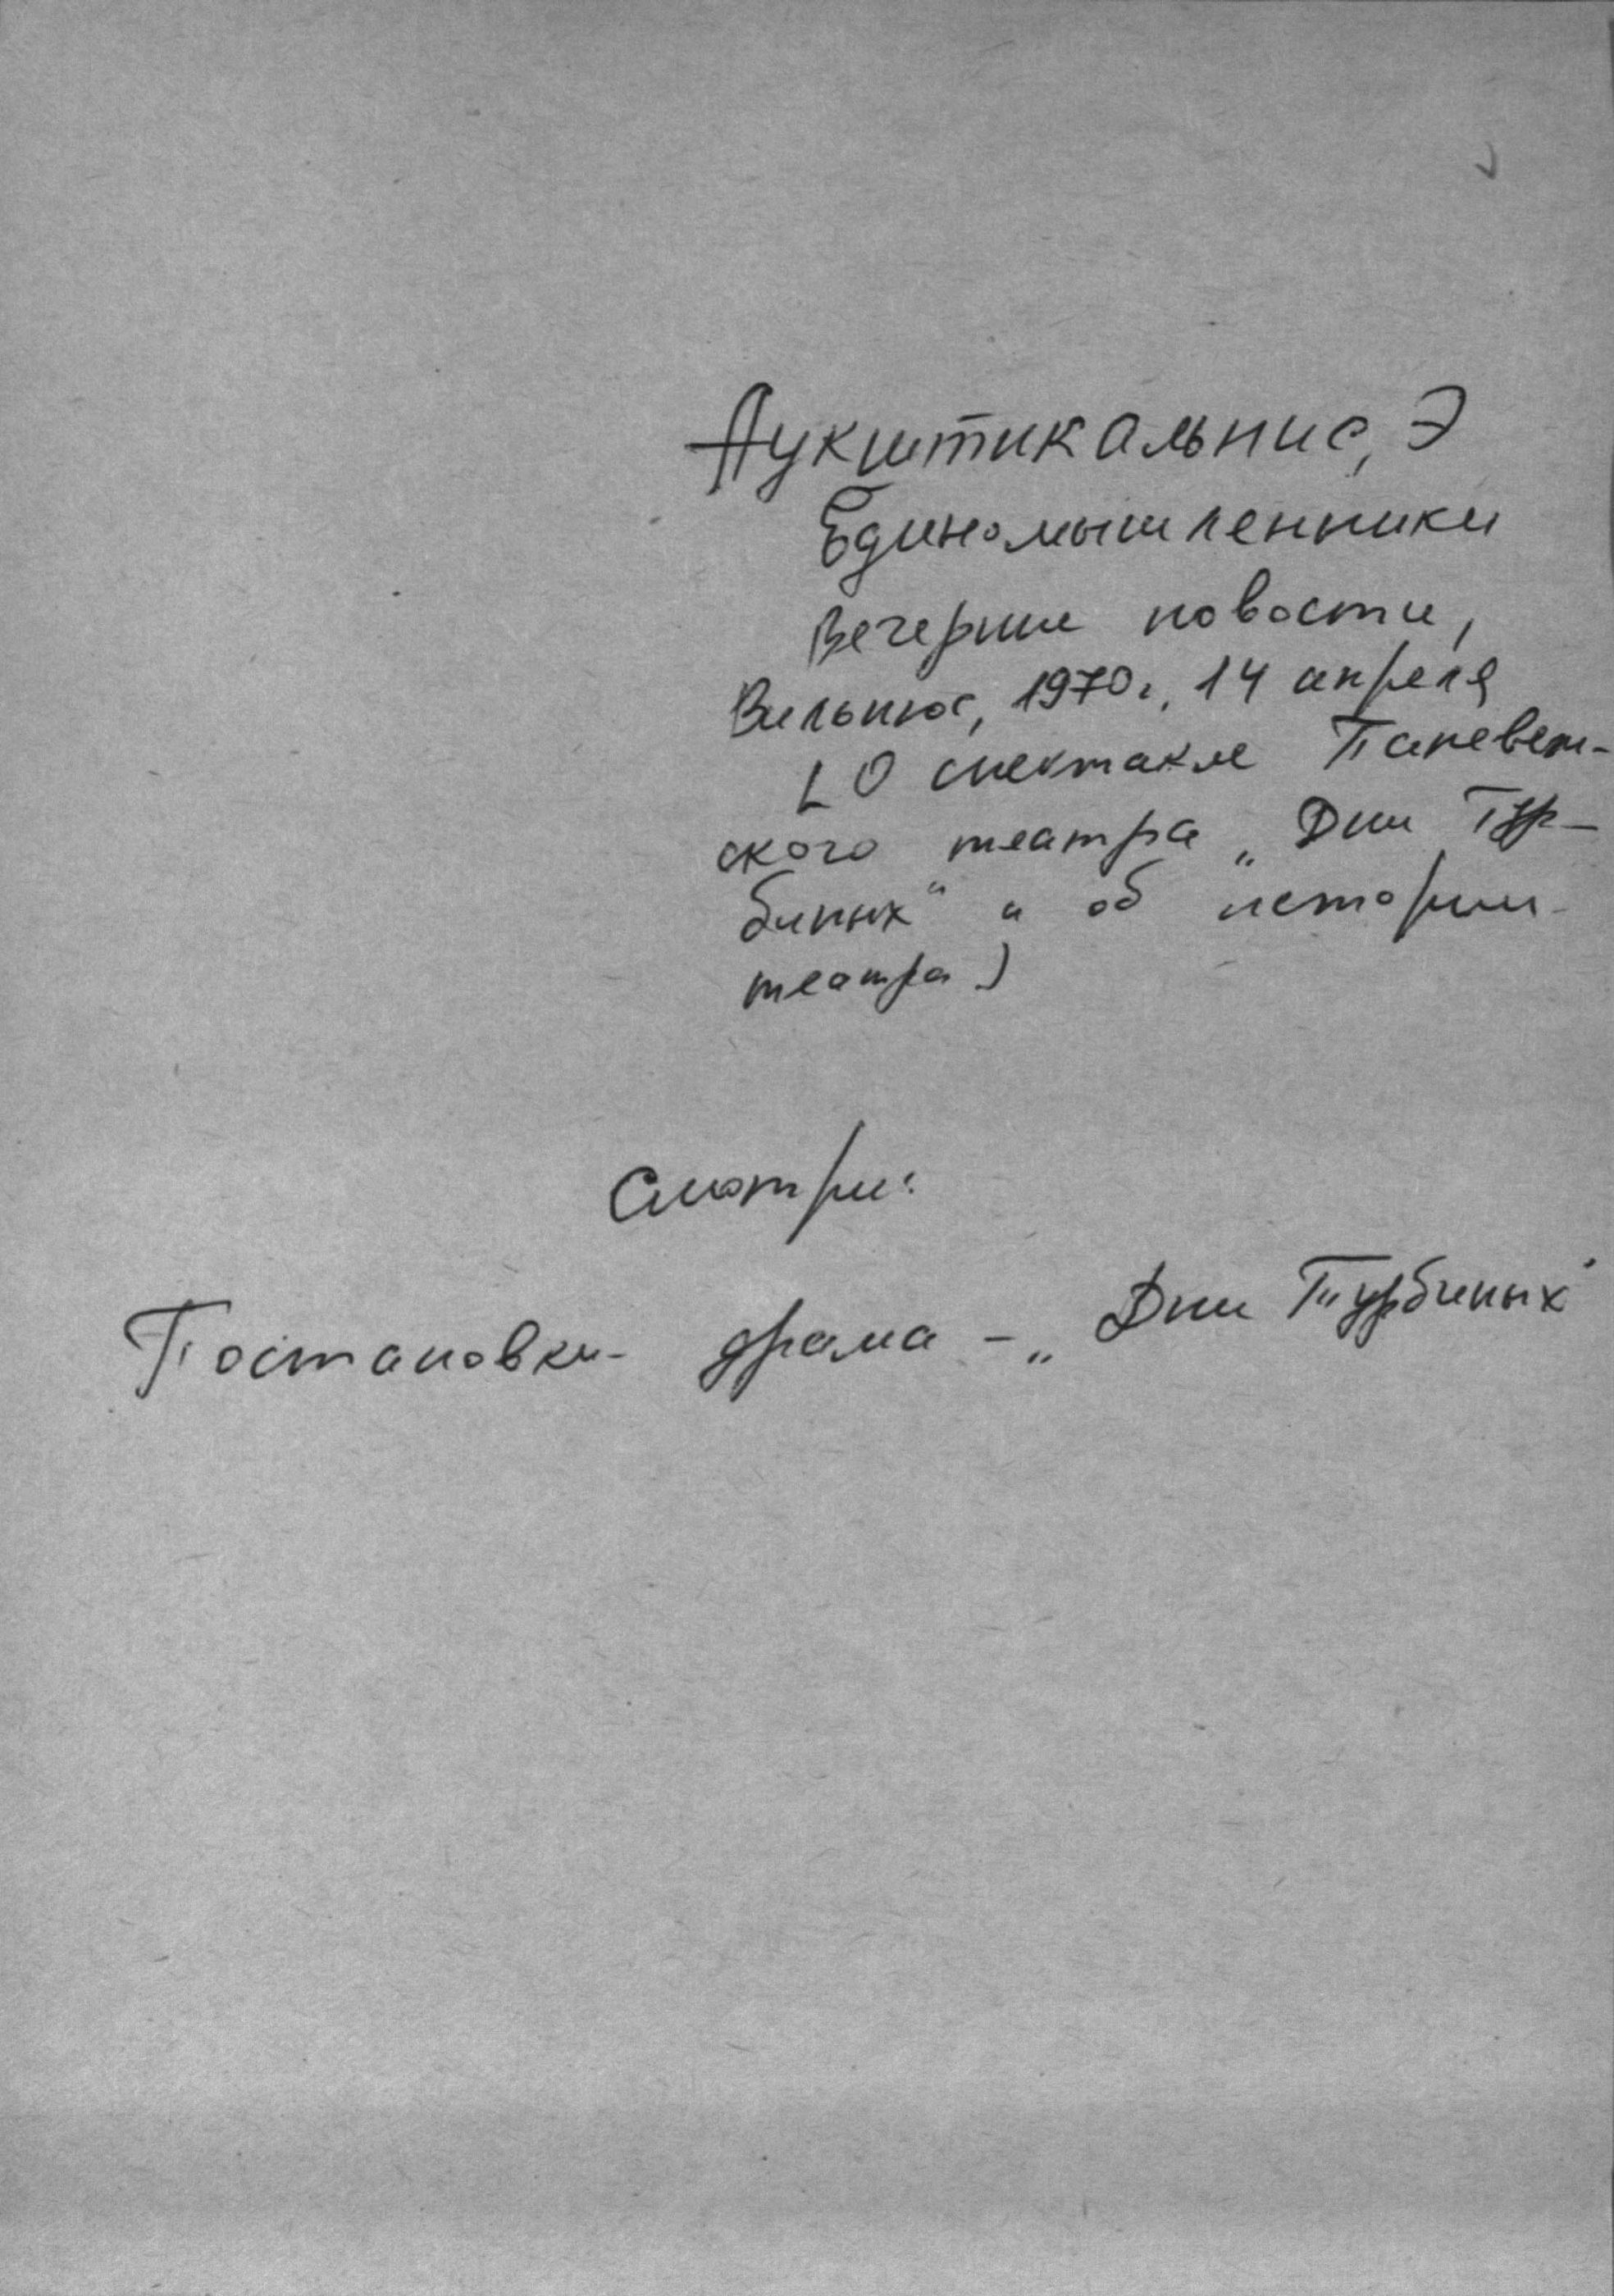 Аукштикальнис, Э
Единомышленники
Вечерние новости,
Вильнюс, 1970 г, 14 апреля
( О спектакле Паневеж-
ского театра „Дни Тур-
биных“ и об истории
театра )
Смотри:
Постановки- драма - „Дни Турбиных“